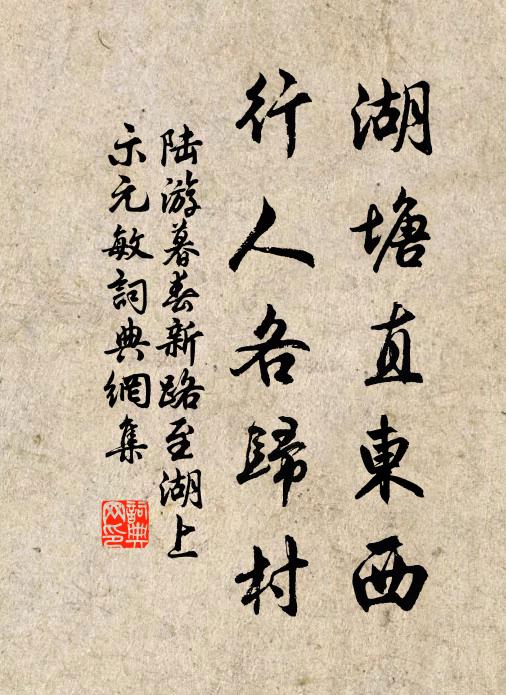 湖塘直東西
行人各歸村
陸游暮春新路至湖上
示元敏詞典網集
詞典
网印